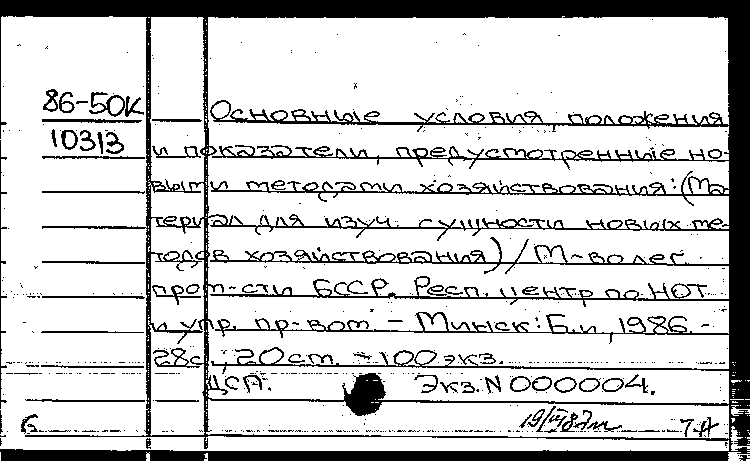 86-50К
10313
Основные условия, положения
и показатели, предусмотренные но-
выми методами хозяйствования: (Ма-
териал для изуч. сущности новых ме-
тодов хозяйствования) / М-во лег.
пром-сти БССР. Респ. центр по НОТ
и упр. пр-вом. - Минск: Б.и., 1986. -
28с.; 20 см. - 100 экз.
ДСП. Экз. N 000004.
6 7.А